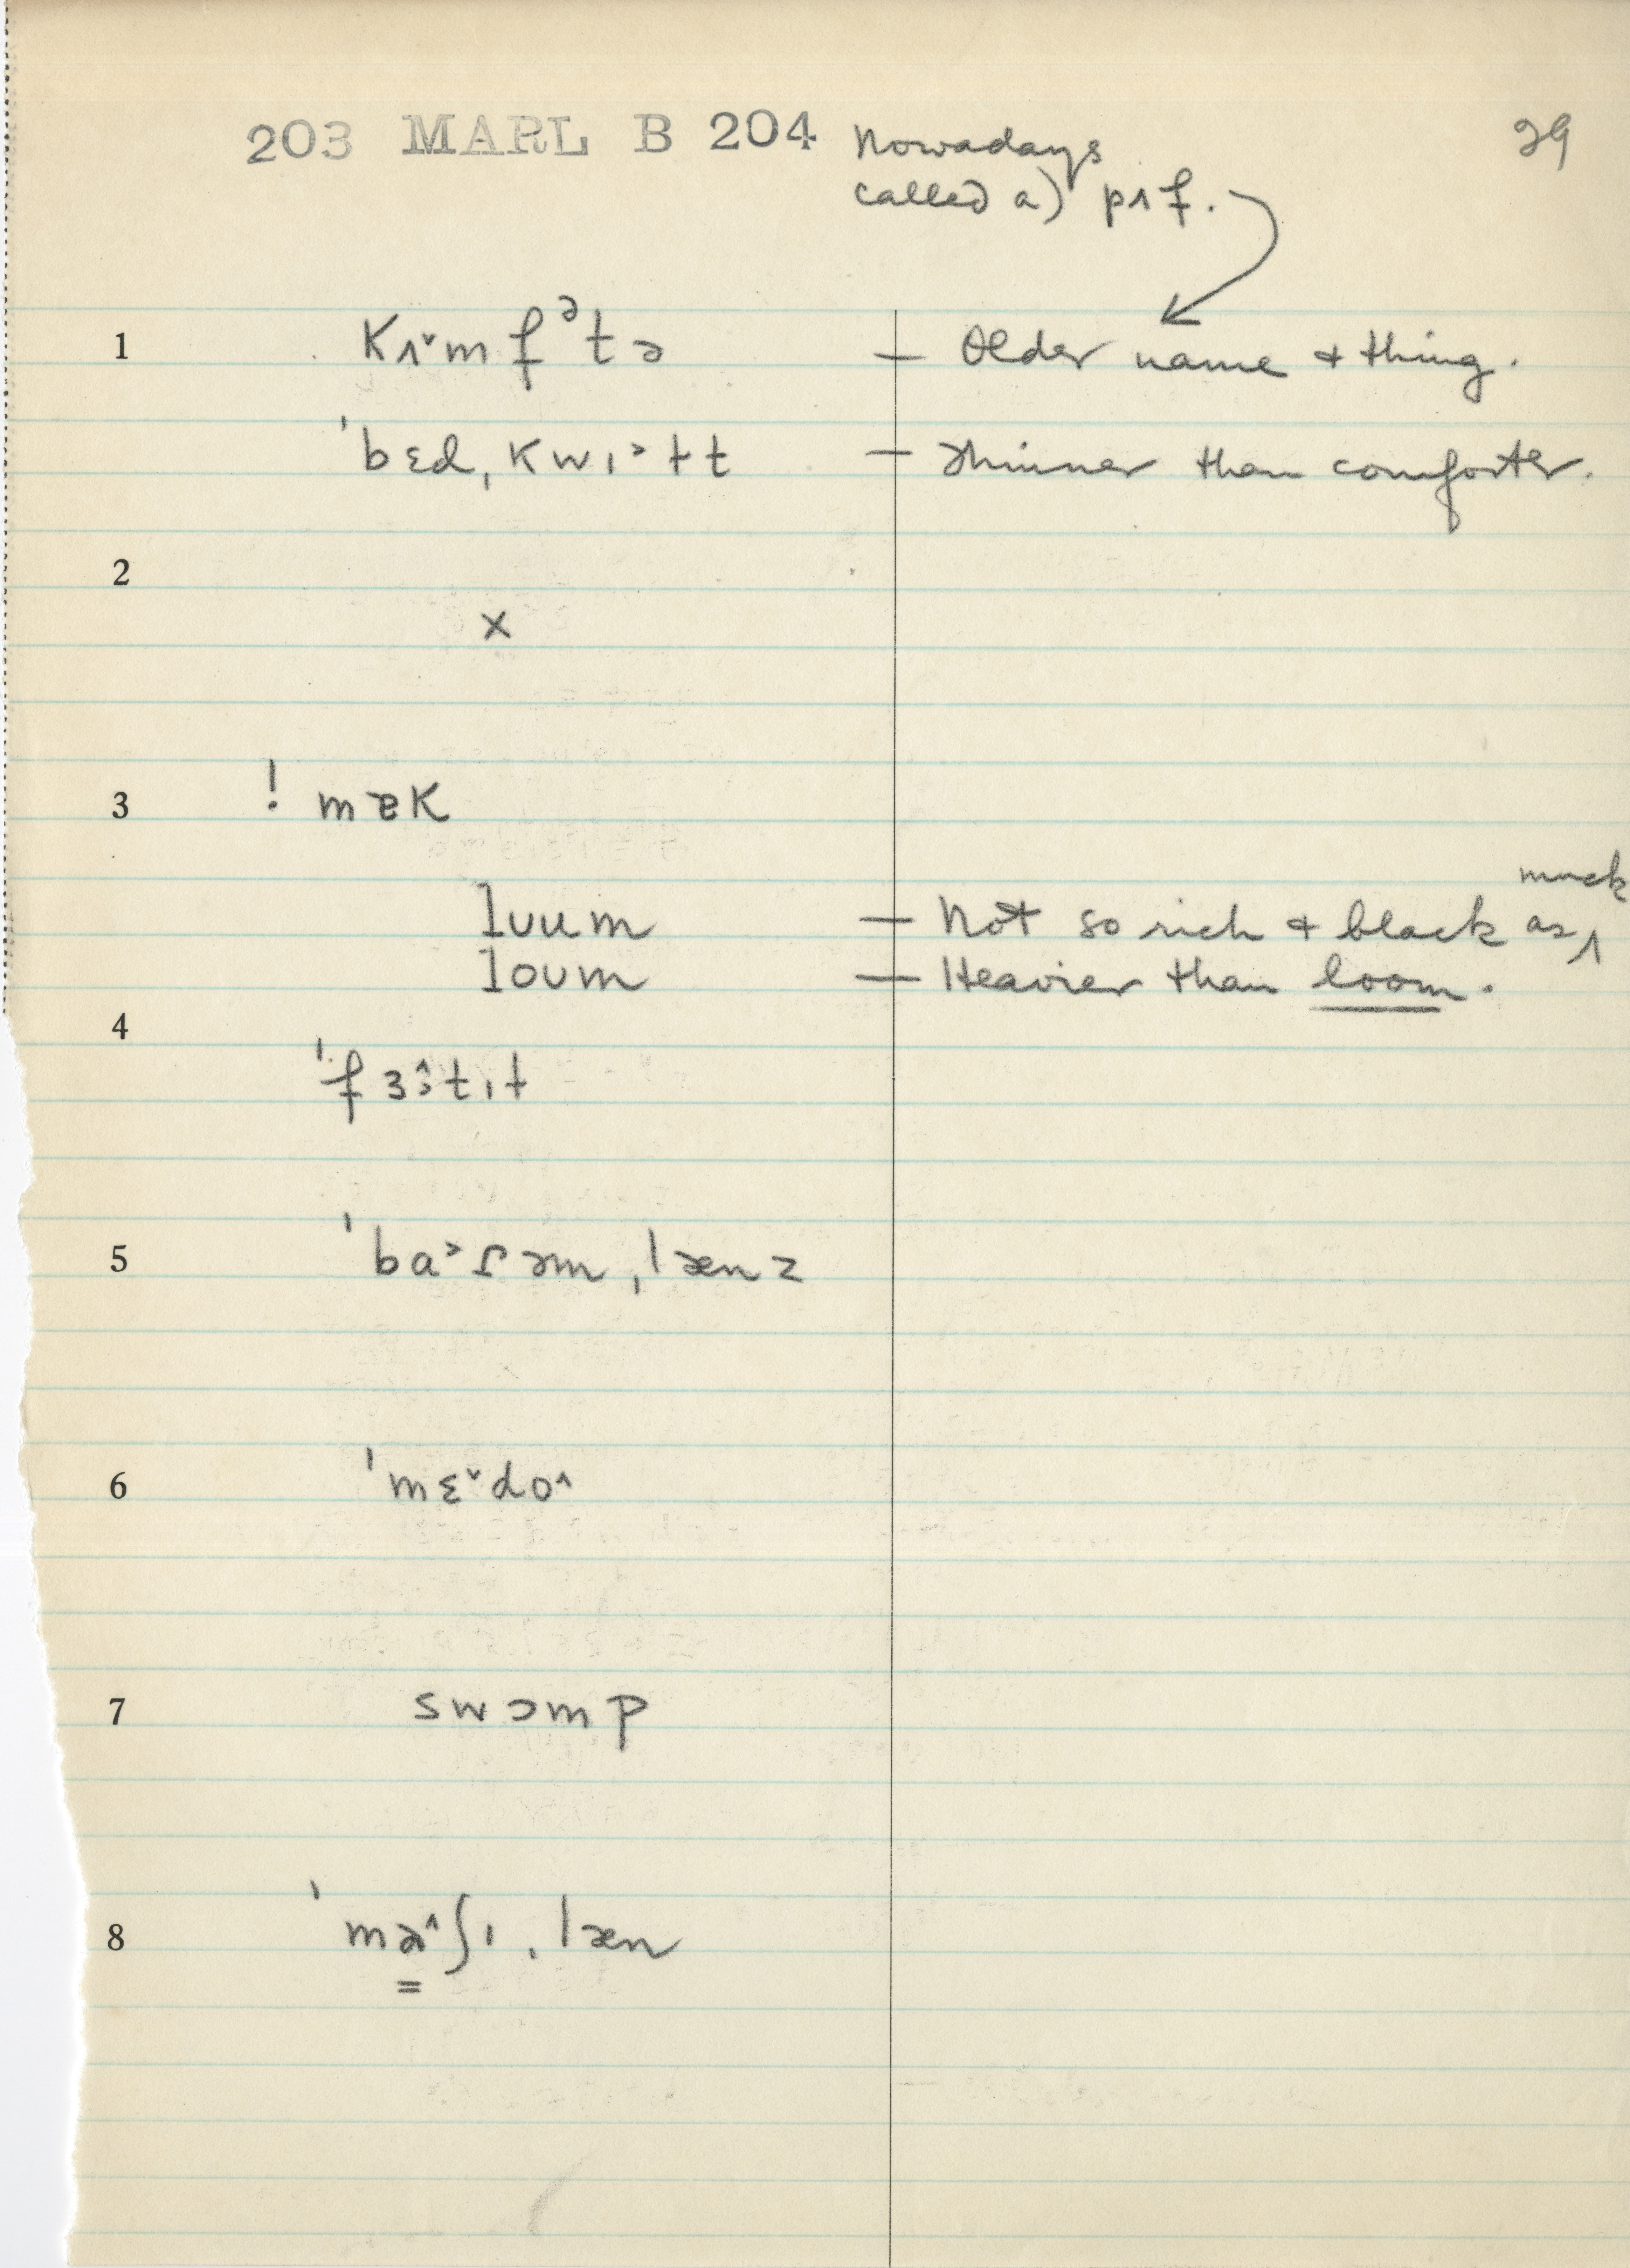 203 MARL B 204 29
Nowadays
called a) pʌf.
1 kʌ˅mfᵊtə — Older name & thing.
ˈbɛd,kwɪ˃ɫt — Thinner than comforter.
2
x
3 ! mɐk
muck
lʊum — Not so rich & black as ‸
loʊm — Heavier than loom.
4
ˈfɜ˄:tɪɫ
5 ˈba˃ɾəm,lænz
6 ˈmɛ˅do˄
7 swɔmp
8 ˈmæ˄ʃɪ,læn
=